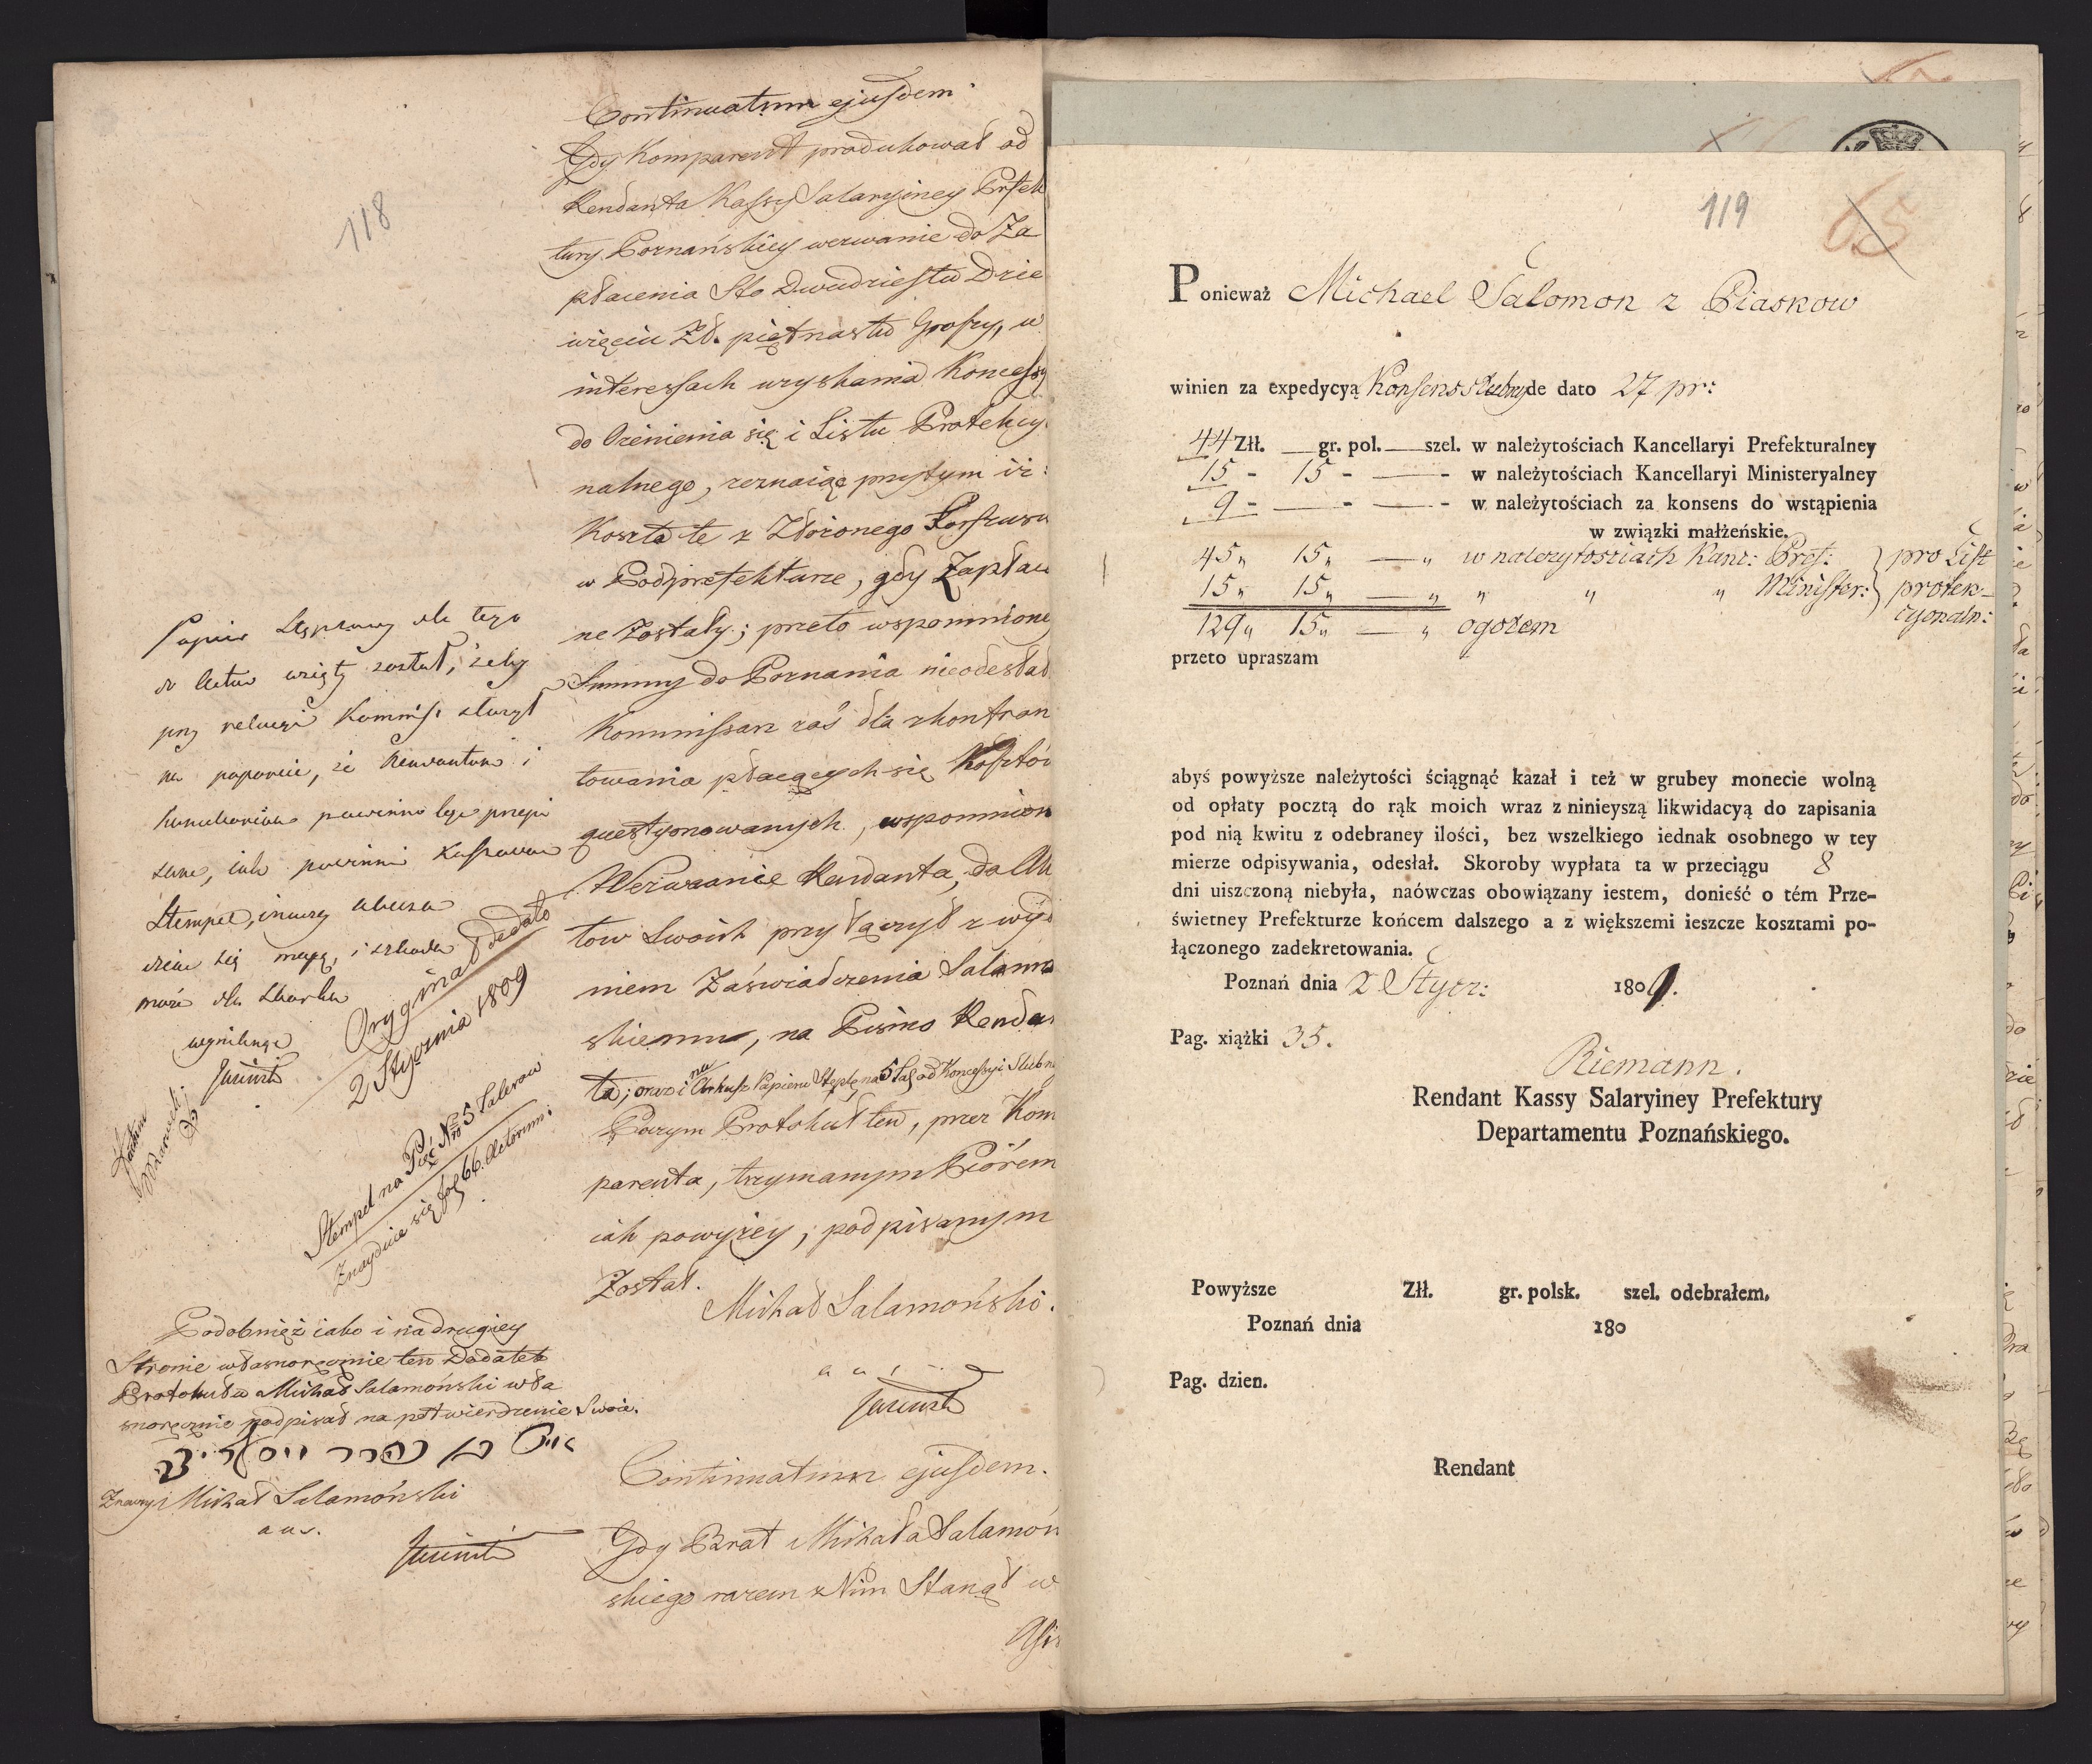 118
Continuatum ejusdem
Gdy Komparent produkował od
Rendanta Kassy Salaryiney Prfek
tury Poznańskiey wezwanie do Za
płacenia Sto Dwudziestu Dzie
więciu Zł. piętnastu Groszy, w
interessach uzyskania Koncessy
do Ożenienia się i Listu Protekcy
nalnego, zeznaiąc przytym iż
Koszta te z Złożonego Forszusu
w Podprefekturze, gdy Zapłaco
ne Zostały; przeto wspomniony
Summy do Poznania nieodesłał
Kommissarz zaś dla zkontran
towania płacących się Kosztów
questyonowanych, wspomnion
Wezwanie Rendanta, do Ak
tow Swoich przyłączył z wyd
niem Zaświadczenia Salamo
skiemu, na Pismo Rendan
ta; oraz i na Arkusz Papieru Stępla na 5 Tal od Koncessyi Slubn
Poczym Protokuł ten, przez Kom
parenta, trzymanym Piórem
iak powyżey, podpisanym
Został.
Michał Salamoński.
Continuatum ejusdem.
Gdy Brat Michała Salamoń
skiego razem z Nim Stanął w
Papier Stęplowy dla tego
z Aktow wzięty został, żeby
przy relacyi Kommiss. służył
na
powinno
sane, iak powinni Kassować
Stempel, inaczy
dziać się mogą, i szkoda
może dla Skarbu
wyniknąć
Oryginał de dato
2 Stycznia 1809
Stempel na Pięć Nro 5 Talerow
Znayduie się fol 66. Actorum:
Podobnież iako i na drugiey
Stronie własnoręcznie ten Dodatek
Protokułu Michał Salamoński wła
snoręcznie podpisał na potwierdzenie Swoie.
Znaczy Michał Salamoński
119
65
Ponieważ Michael Salomon z Piaskow
winien za expedycyą Konsens slubny de dato 27 pr:
44 Złł. — gr. pol. — szel. w należytościach Kancellaryi Prefekturalney
15 - 15 - — - w należytościach Kancellaryi Ministeryalney
9 - — - — - w należytościach za konsens do wstąpienia
w związki małżeńskie.
45 " 15 " — " w nalezytosciach Kanc: Pref: } pro List
15 " 15 " — " " " " Minister: } protek-
cyonaln:
129 " 15 " — " ogołem
przeto upraszam
abyś powyższe należytości ściągnąć kazał i też w grubey monecie wolną
od opłaty pocztą do rąk moich wraz z ninieyszą likwidacyą do zapisania
pod nią kwitu z odebraney ilości, bez wszelkiego iednak osobnego w tey
mierze odpisywania, odesłał. Skoroby wypłata ta w przeciągu 8
dni uiszczoną niebyła, naówczas obowiązany iestem, donieść o tém Prze-
świetney Prefekturze końcem dalszego a z większemi ieszcze kosztami po-
łączonego zadekretowania.
Poznań dnia 2 Stycz: 1809.
Pag. xiążki 35.
Riemann.
Rendant Kassy Salaryiney Prefektury
Departamentu Poznańskiego.
Powyższe Złł. gr. polsk. szel. odebrałem.
Poznań dnia 180
Pag. dzien.
Rendant